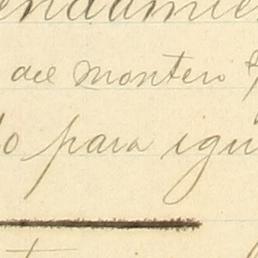 endamie
del montero
o para igu